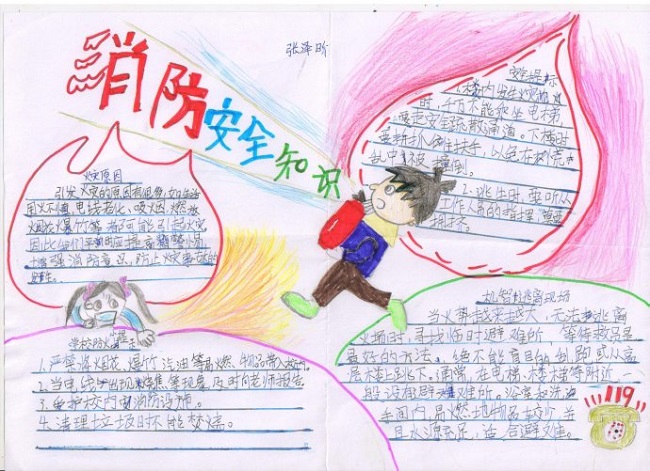 消防安全知识
张泽昕
火灾原因
引发火灾的原因有很多,如生活
用火不慎,电线老化、吸烟、燃放
烟花爆竹等,都可能引起火灾,
因此,我们平时应提高警惕,
增强消防意识,防止火灾事故的
发生。
安全提示
1.楼内出生火灾
时,千万不能乘坐电梯,
要走安全疏散通道。下楼时
要抓住扶手,以免在
乱中被撞倒。
2.逃生时,要听从
工作人员的
学校防火
1.严禁将烟花、爆竹、汽油等易燃物品带入校内。
2.当电线出现等现象及时向老师报告。
3.爱护校内电消防设施。
4.清理垃圾时不能焚烧。
机智逃离现场
当火势越来越大,无法逃离
火场时,寻找临时避难所,等待救援是
最好的方法。绝不能盲目的乱跑或从高
层楼上跳下。通常,在电梯、楼梯等附近一
般设有避难所。浴室和洗
手间内,易燃物品较少,并
且水源充足,适合避难。
119